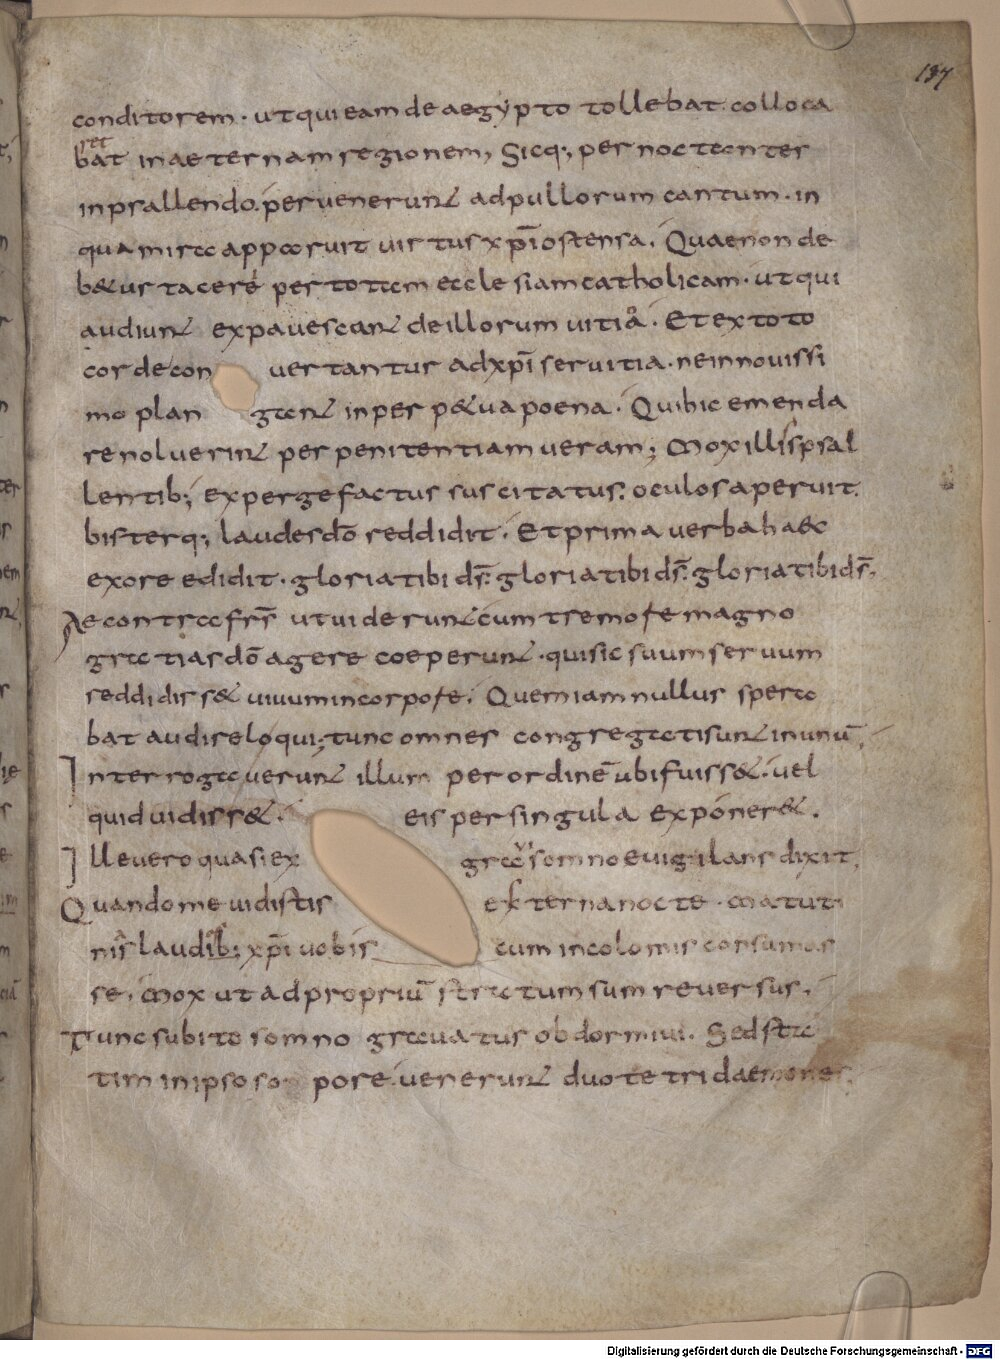 137
conditorem · ut qui eam de aegypto tollebat · colloca
ret
bat in aeternam regionem; Sicq; per noctem ter
in psallendo pervenerunt ad pullorum cantum · in
qua mira apparuit virtus xpi ostensa. Quae non de
b& ur tacere per totam ecclesiam catholicam · ut qui
audiunt expavescant de illorum vitia. Et ex toto
corde con vertantur ad xpi servitia · ne in novissi
mo plan gant in perp&ua poena. Qui hic emenda
re noluerint per penitentiam veram; Mox illis psal
lentib; expergefactus suscitatus. oculos aperuit.
bis terq; laudes do reddidit. Et prima verba haec
ex ore edidit · gloria tibi ds. gloria tibi ds. gloria tibi ds.
Ae contra frs ut viderunt cum tremore magno
gratias do agere coeperunt · qui sic suum servum
reddidiss& vivum in corpore. Quem iam nullus spera
bat audire loqui; tunc omnes congregati sunt in unu
Interrogaverunt illum per ordine ubi fuiss&. vel
quid vidiss&. eis per singula exponer&.
Ille vero quasi ex gravi somno evigilans dixit,
Quando me vidistis externa nocte · matuti
nis laudib; xpi vobis cum incolomis corsumas
se. Mox ut ad propriu stratum sum reversus.
Tunc subito somno gravatus obdormivi. Sed sta
tim in ipso so pore venerunt duo tetri daemones.
Digitalisierung gefördert durch die Deutsche Forschungsgemeinschaft - DFG